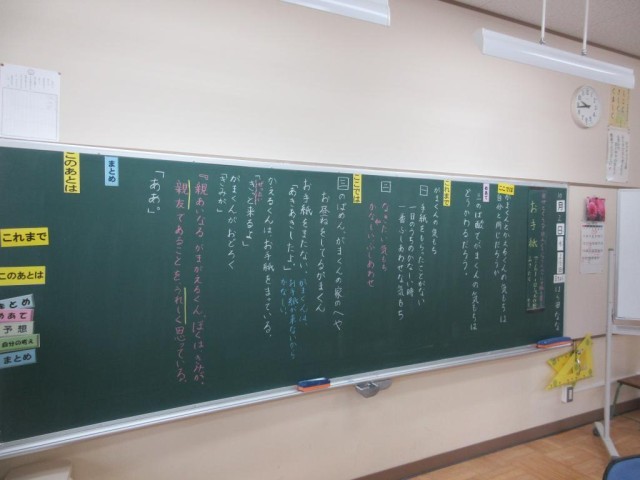 お手紙
ここでは
がまくんとかえるくんの気もちは
自分と同じだろうか。
めあて
三のば面でがまくんの気もちは
どうかわるだろう。
これまで
がまくんの気もち
一 手紙をもらったことがない
一日のうちのかなしい時
一番ふしあわせな気もち
二
かなしい ふしあわせ
ここでは
三 三のばめん、がまくんの家のへや
お昼ねをしているがまくん
お手紙をまたない。がまくんは、
「あきあきしたよ」
かえるくんは、お手紙をまっている。
「きっと来るよ」
がまくんがおどろく
「きみが」
『親あいなる がまがえるくん。ぼくは、きみが、
親友であることを、うれしく思っている。
「ああ。」
まとめ
このあとは
これまで
このあとは
まとめ
めあて
予想
自分の考え
まとめ